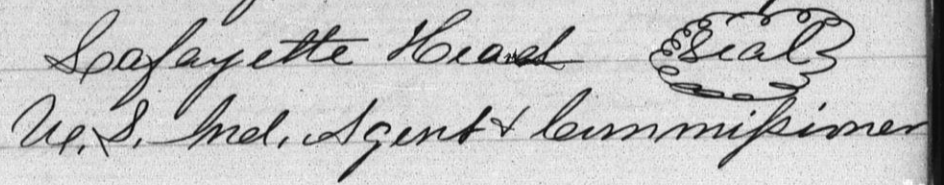 Lafayette Head Seal
U.S. Ind. Agent & Commissioner